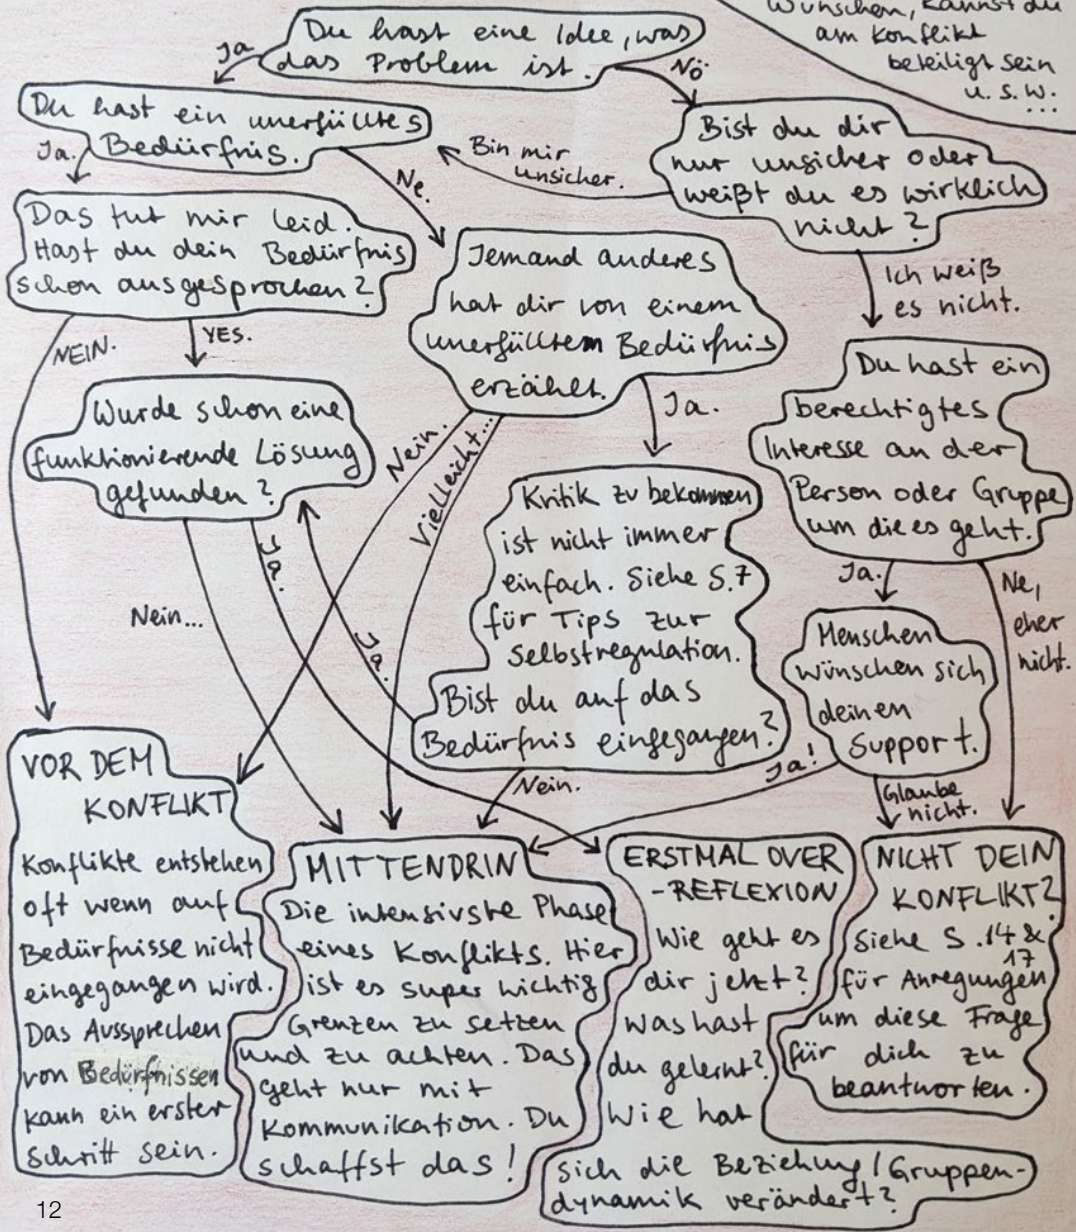 Wünschen, kannst du
am Konflikt
beteiligt sein
u. s. w.
...
Du hast eine Idee, was
das Problem ist.
Ja
Nö
Du hast ein unerfülltes
Bedürfnis.
Bist du dir
nur unsicher oder
weißt du es wirklich
nicht?
Bin mir
unsicher.
Ja.
Ne.
Das tut mir leid.
Hast du dein Bedürfnis
schon ausgesprochen?
Jemand anderes
hat dir von einem
unerfülltem Bedürfnis
erzählt.
Ich weiß
es nicht.
NEIN.
YES.
Wurde schon eine
funktionierende Lösung
gefunden?
Nein.
Vielleicht...
Ja.
Du hast ein
berechtigtes
Interesse an der
Person oder Gruppe
um die es geht.
Kritik zu bekommen
ist nicht immer
einfach. Siehe S.7
für Tips zur
Selbstregulation.
Bist du auf das
Bedürfnis eingegangen?
Ja.
Ne,
eher
nicht.
Nein...
Ja.
Ja.
Menschen
wünschen sich
deinen
Support.
Nein.
Ja!
Glaube
nicht.
VOR DEM
KONFLIKT
Konflikte entstehen
oft wenn auf
Bedürfnisse nicht
eingegangen wird.
Das Aussprechen
von Bedürfnissen
kann ein erster
Schritt sein.
MITTENDRIN
Die intensivste Phase
eines Konflikts. Hier
ist es super wichtig
Grenzen zu setzen
und zu achten. Das
geht nur mit
Kommunikation. Du
schaffst das!
ERSTMAL OVER
-REFLEXION
Wie geht es
dir jetzt?
Was hast
du gelernt?
Wie hat
sich die Beziehung/Gruppen-
dynamik verändert?
NICHT DEIN
KONFLIKT?
Siehe S.14 &
17
für Anregungen
um diese Frage
für dich zu
beantworten.
12